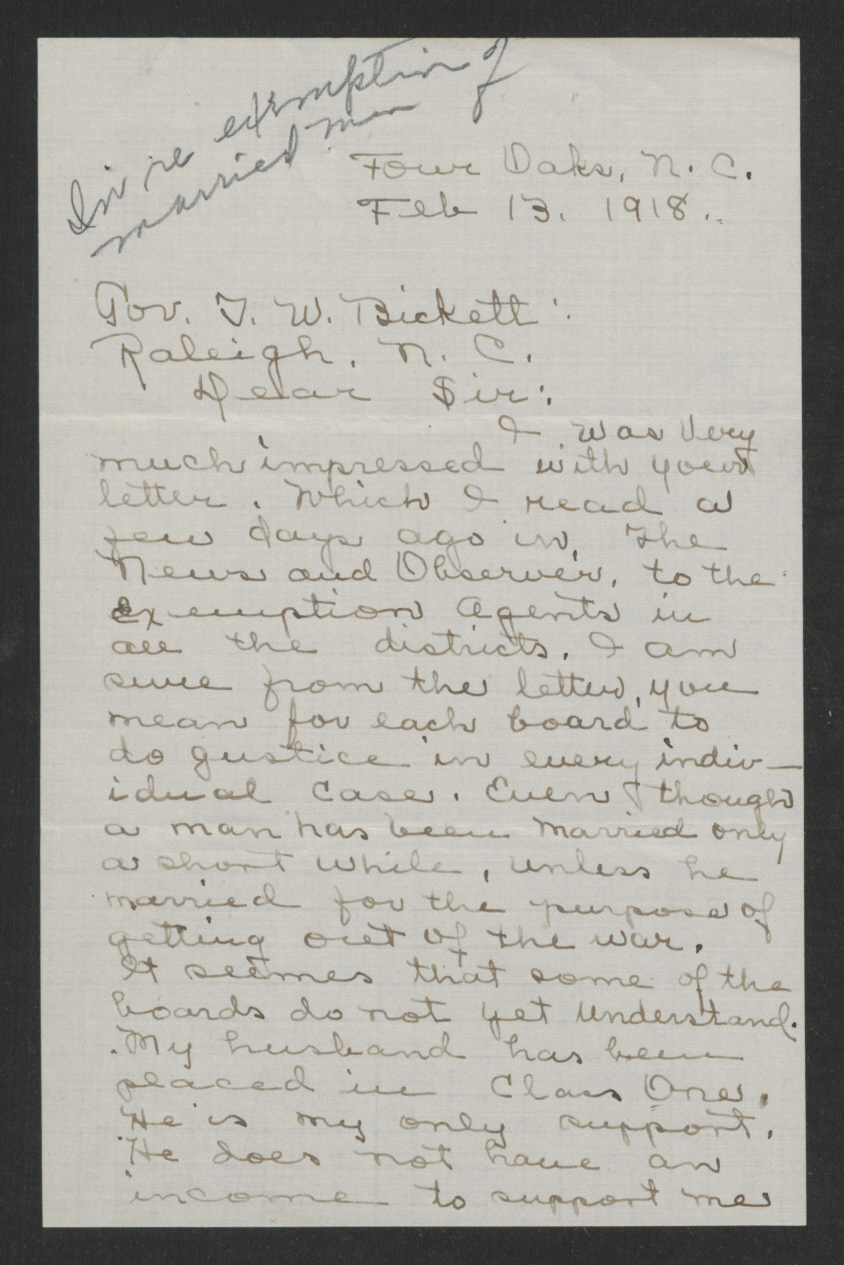 In re exemption of
married men
Four Oaks, N. C.
Feb 13. 1918.
Gov. T. W. Bickett:
Raleigh, N. C.
Dear Sir:
I was very
much impressed with your
letter. Which I read a
few days ago in, The
News and Observer, to the
Exemption Agents in
all the districts. I am
sure from the letter, you
mean for each board to
do justice in every indiv-
idual case. Even though
a man has been married only
a short while, unless he
married for the purpose of
getting out of the war.
It seemes that some of the
boards do not yet understand.
My husband has been
placed in Class One.
He is my only support.
He does not have an
income to support me